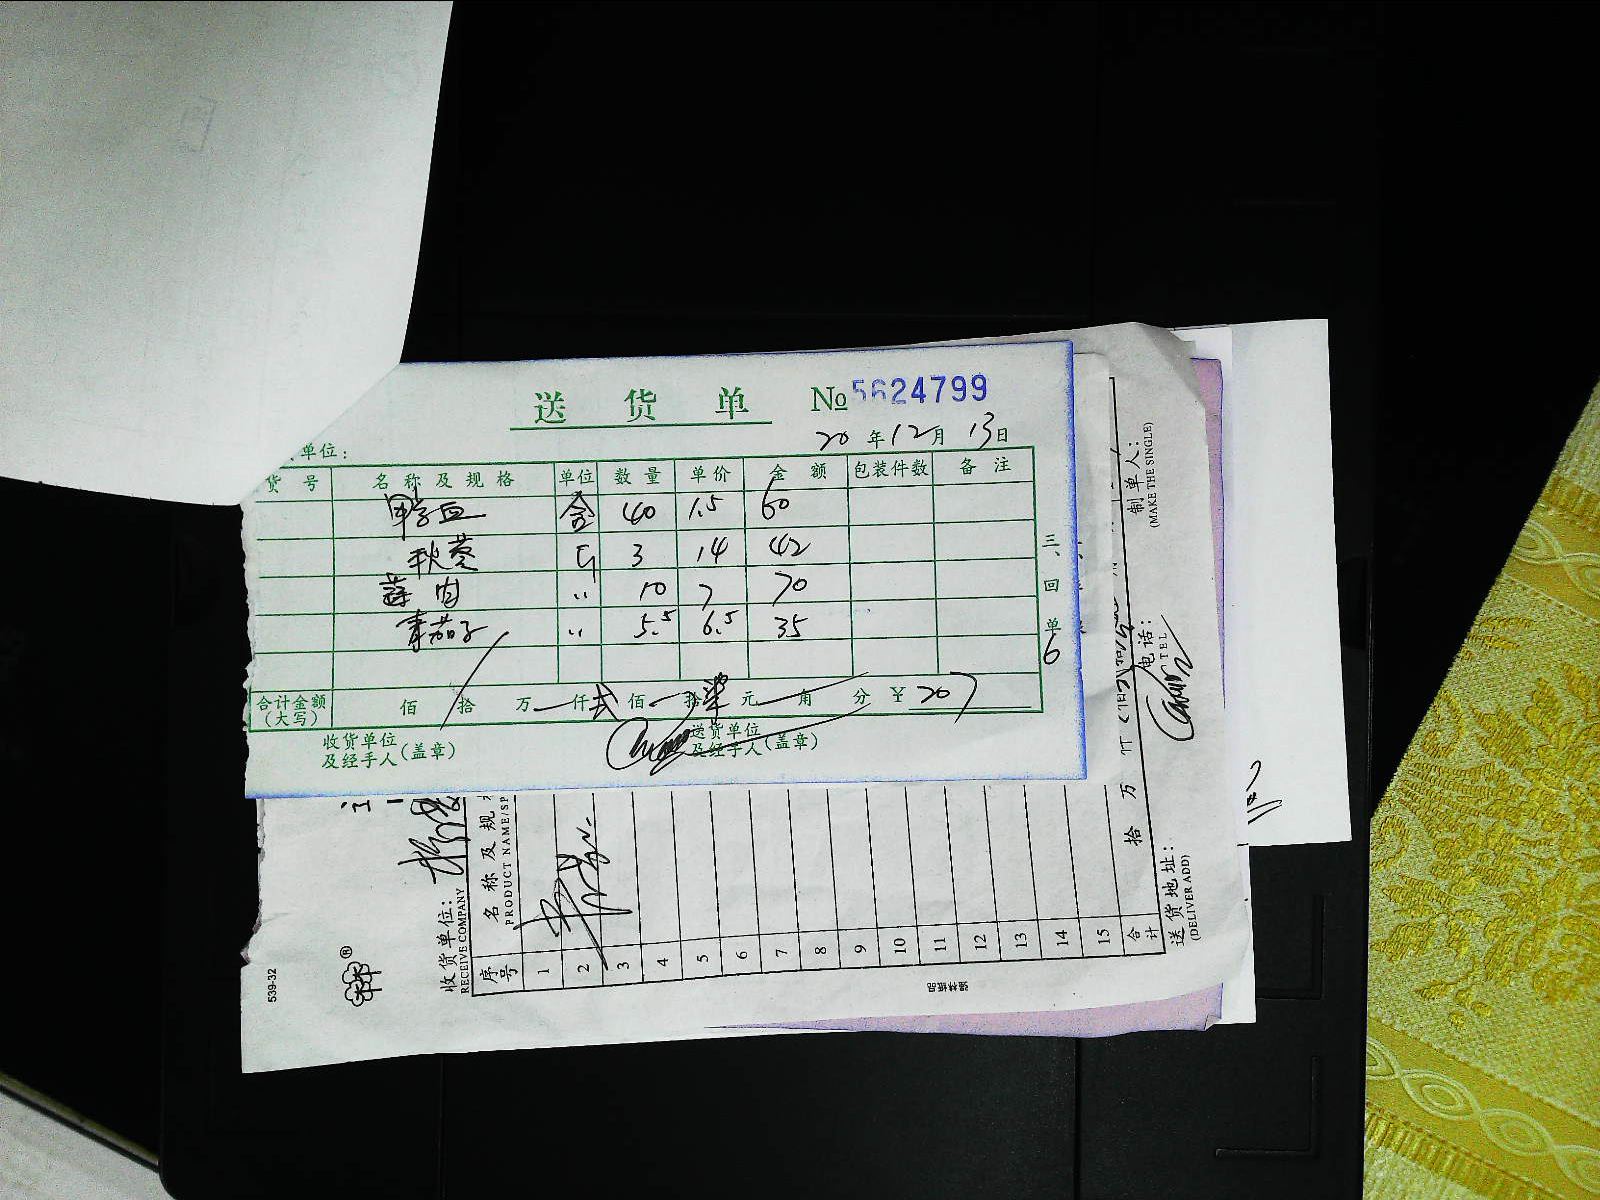 送 货 单 №5624799
单位：
20年12月13日
货 号 名 称 及 规 格 单位 数 量 单 价 金 额 包装件数 备 注
鸭血 盒 40 1.5 60
秋葵 斤 3 14 42
蒜肉 〃 10 7 70
青茄子 〃 5.5 6.5 35
三、回单
6
合计金额（大写） 佰 拾 万 仟 弍 佰 拾 柒 元 角 分 ￥207
收货单位及经手人（盖章）
送货单位及经手人（盖章）
539-32
收货单位：
RECEIVE COMPANY
序号 名 称 及 规
PRODUCT NAME/SP
1
2
3
4
5
6
7
8
9
10
11
12
13
14
15
合计 拾 万 仟
送货地址：
(DELIVER ADD)
电话：
TEL
制单人：
(MAKE THE SINGLE)